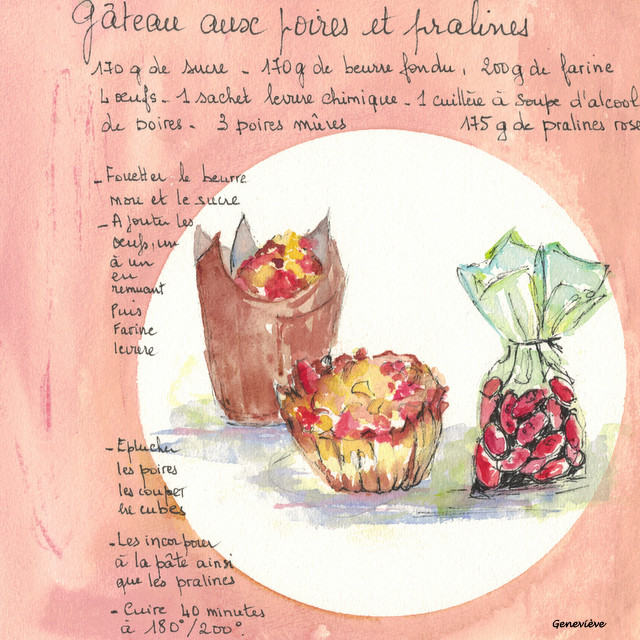 Gâteau aux poires et pralines
170 g de sucre - 170 g de beurre fondu, 200 g de farine
4 œufs - 1 sachet levure chimique - 1 cuillère à soupe d'alcool
de poires - 3 poires mûres 175 g de pralines rose
- Fouetter le beurre
mou et le sucre
- Ajouter les
œufs, un
à un
en
remuant
Puis
Farine
levure
- Eplucher
les poires
les couper
en cubes
- Les incorporer
à la pâte ainsi
que les pralines
- Cuire 40 minutes
à 180°/200°.
Geneviève